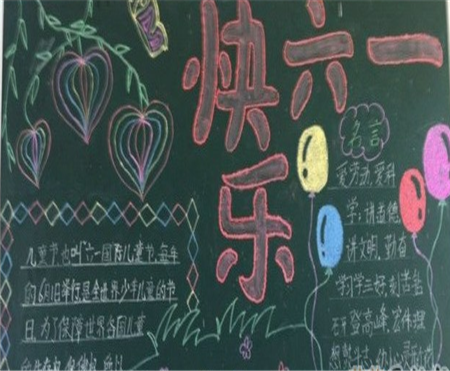 快六一
乐
名言
爱劳动,爱科
学;讲道德
讲文明,勤奋
学习学三好,刻苦钻
研登高峰
儿童节,也叫六一国际儿童节,每年
的6月1日举行,是全世界少年儿童的节
日,为了保障世界各国儿童